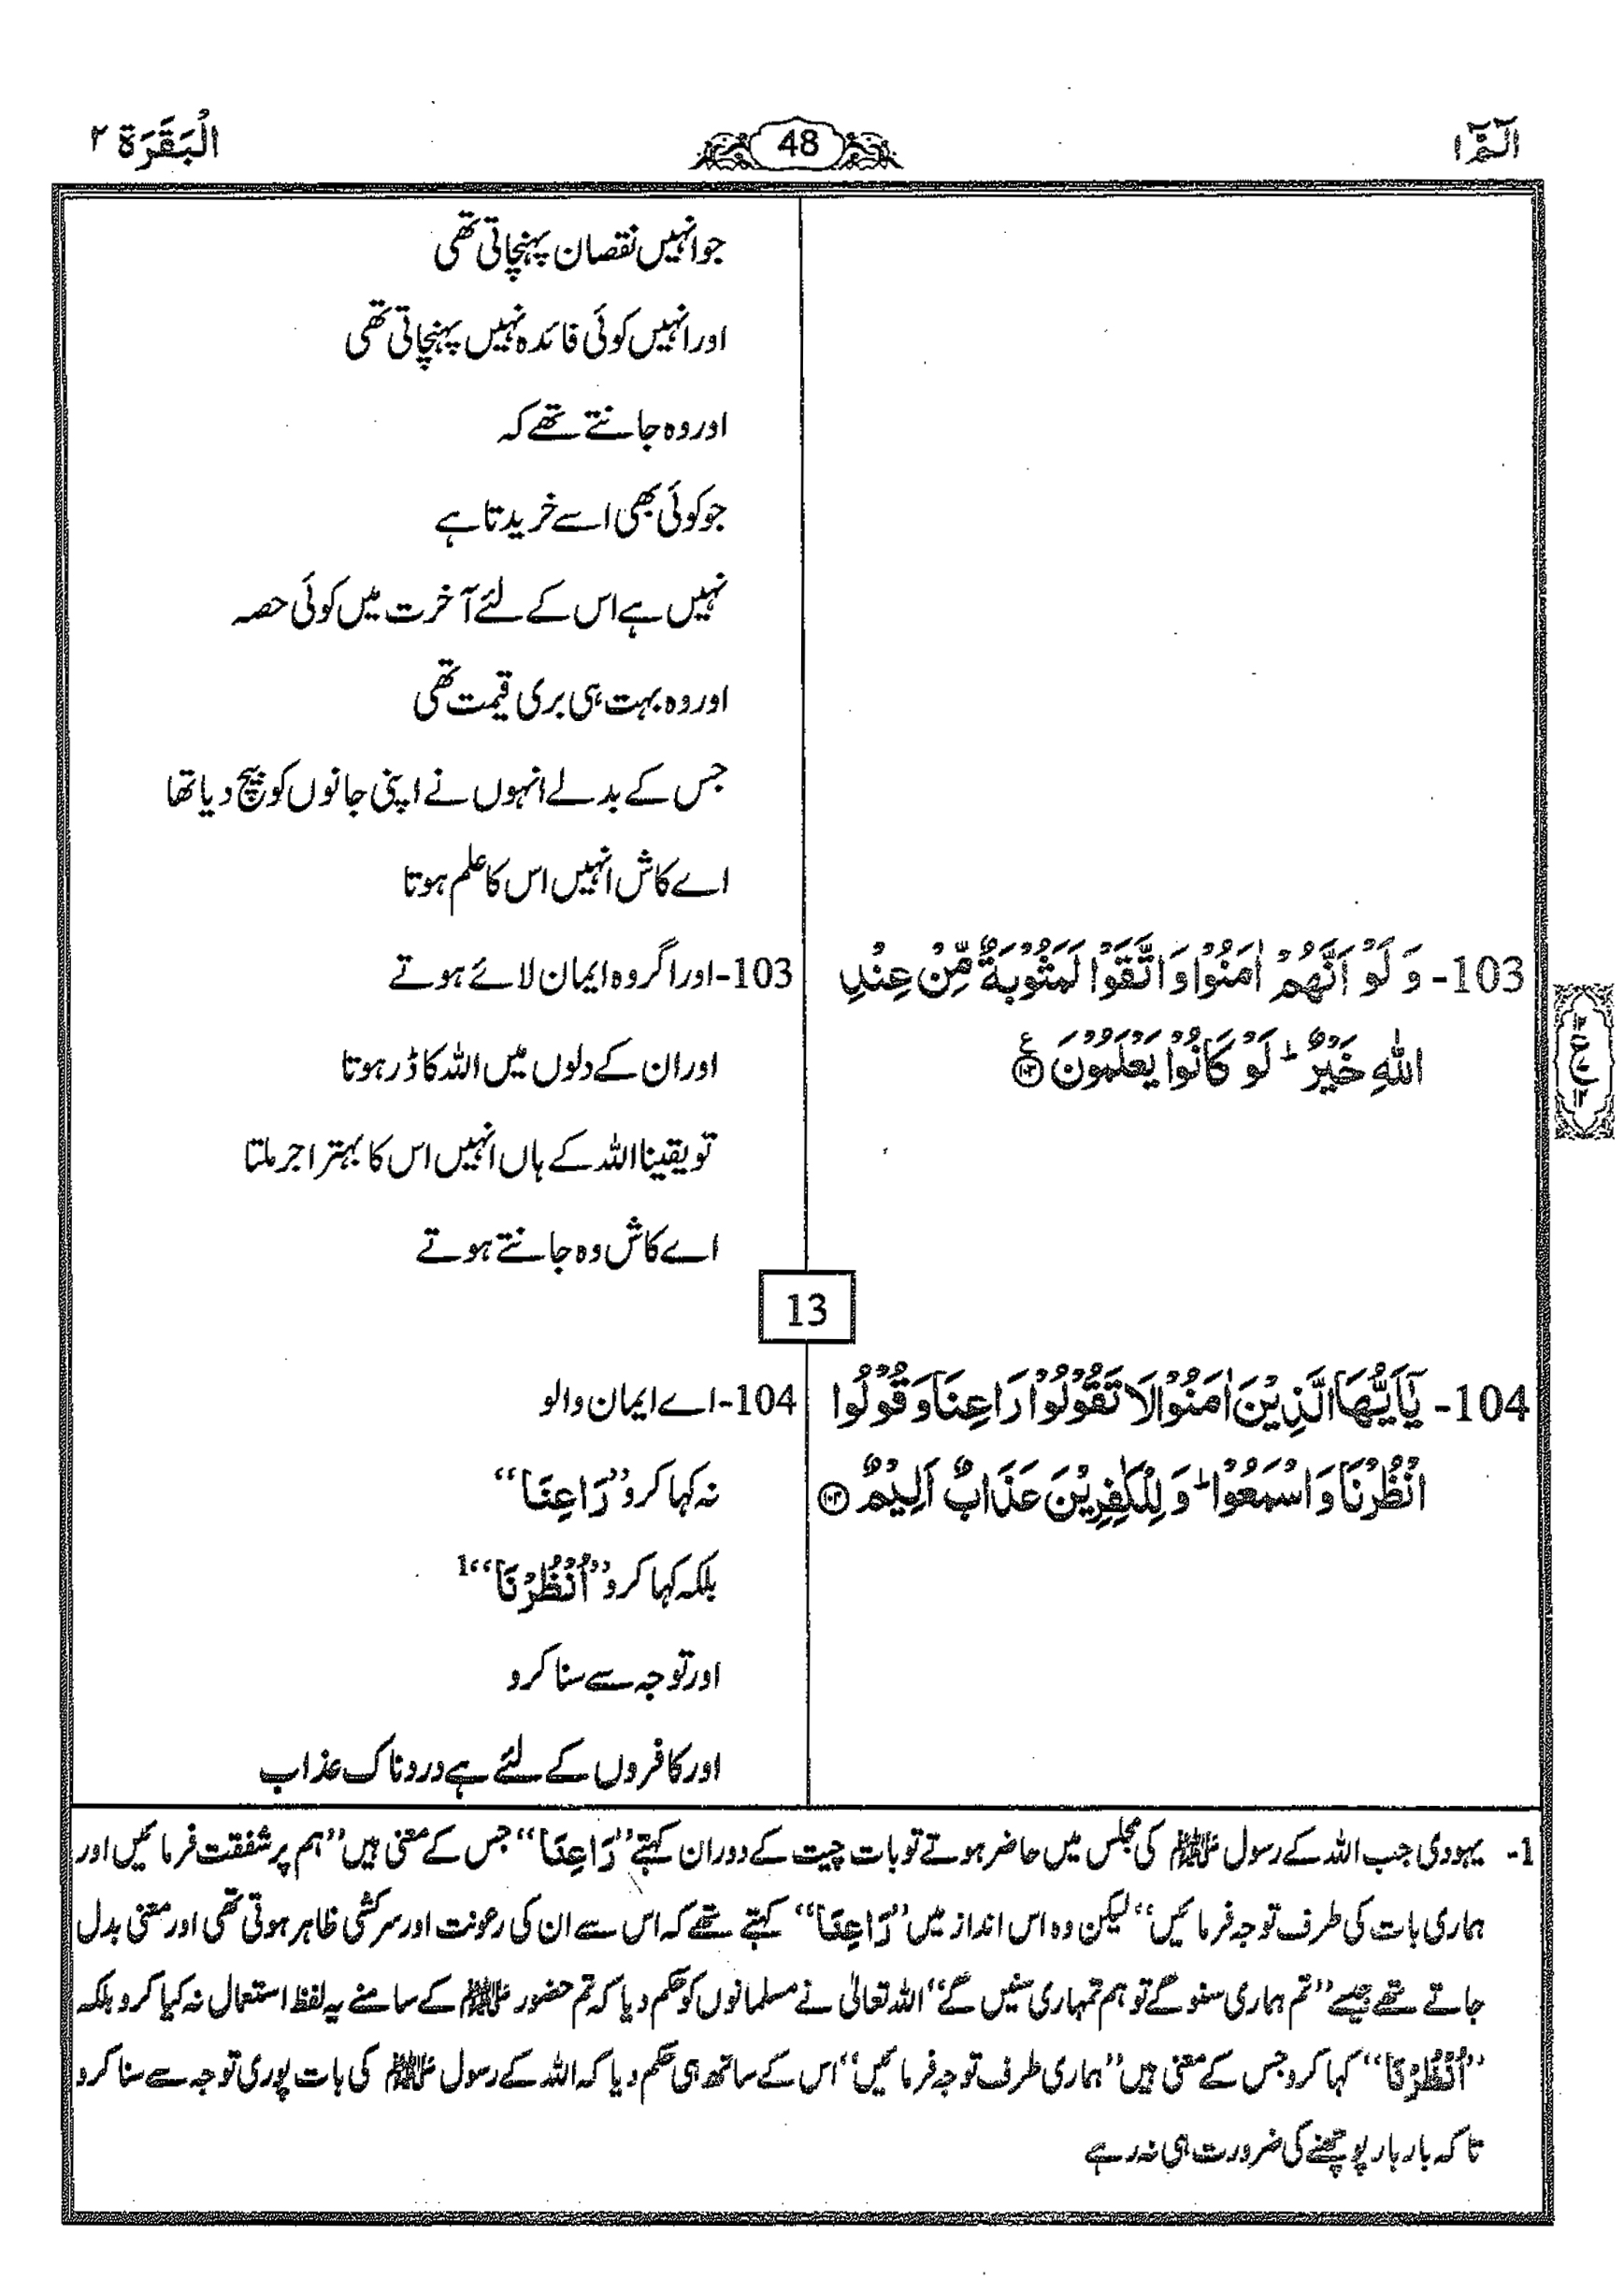 الٓمّٓ ۱
48
الْبَقَرَة ۲
جوانہیں نقصان پہنچاتی تھی
اورانہیں کوئی فائدہ نہیں پہنچاتی تھی
اوروہ جانتے تھے کہ
جوکوئی بھی اسے خریدتا ہے
نہیں ہے اس کے لئے آخرت میں کوئی حصہ
اوروہ بہت ہی بری قیمت تھی
جس کے بدلے انہوں نے اپنی جانوں کو بیچ دیا تھا
اے کاش انہیں اس کا علم ہوتا
103- وَ لَوْ اَنَّهُمْ اٰمَنُوْا وَ اتَّقَوْا لَمَثُوْبَةٌ مِّنْ عِنْدِ
اللّٰهِ خَيْرٌ ؕ لَوْ كَانُوْا يَعْلَمُوْنَ ۧ۝۱۰۳
103- اوراگروہ ایمان لائے ہوتے
اوران کے دلوں میں اللہ کا ڈر ہوتا
تو یقینا اللہ کے ہاں انہیں اس کا بہتر اجر ملتا
اے کاش وہ جانتے ہوتے
ع
13
104- يٰۤاَيُّهَا الَّذِيْنَ اٰمَنُوْا لَا تَقُوْلُوْا رَاعِنَا وَ قُوْلُوا
انْظُرْنَا وَ اسْمَعُوْا ؕ وَ لِلْكٰفِرِيْنَ عَذَابٌ اَلِيْمٌ ۝۱۰۴
104- اے ایمان والو
نہ کہا کرو ”رَاعِنَا“
بلکہ کہا کرو ”اُنْظُرْنَا“ 1
اور توجہ سے سنا کرو
اور کافروں کے لئے ہے دردناک عذاب
1- یہودی جب اللہ کے رسول ﷺ کی مجلس میں حاضر ہوتے تو بات چیت کے دوران کہتے ”رَاعِنَا“ جس کے معنی ہیں ”ہم پر شفقت فرمائیں اور
ہماری بات کی طرف توجہ فرمائیں“ لیکن وہ اس انداز میں ”رَاعِنَا“ کہتے تھے کہ اس سے ان کی رعونت اور سرکشی ظاہر ہوتی تھی اور معنی بدل
جاتے تھے جیسے ”تم ہماری سنو گے تو ہم تمہاری سنیں گے“ اللہ تعالیٰ نے مسلمانوں کو حکم دیا کہ تم حضور ﷺ کے سامنے یہ لفظ استعمال نہ کیا کرو بلکہ
”اُنْظُرْنَا“ کہا کرو جس کے معنی ہیں ”ہماری طرف توجہ فرمائیں“ اس کے ساتھ ہی حکم دیا کہ اللہ کے رسول ﷺ کی بات پوری توجہ سے سنا کرو
تاکہ بار بار پوچھنے کی ضرورت ہی نہ رہے